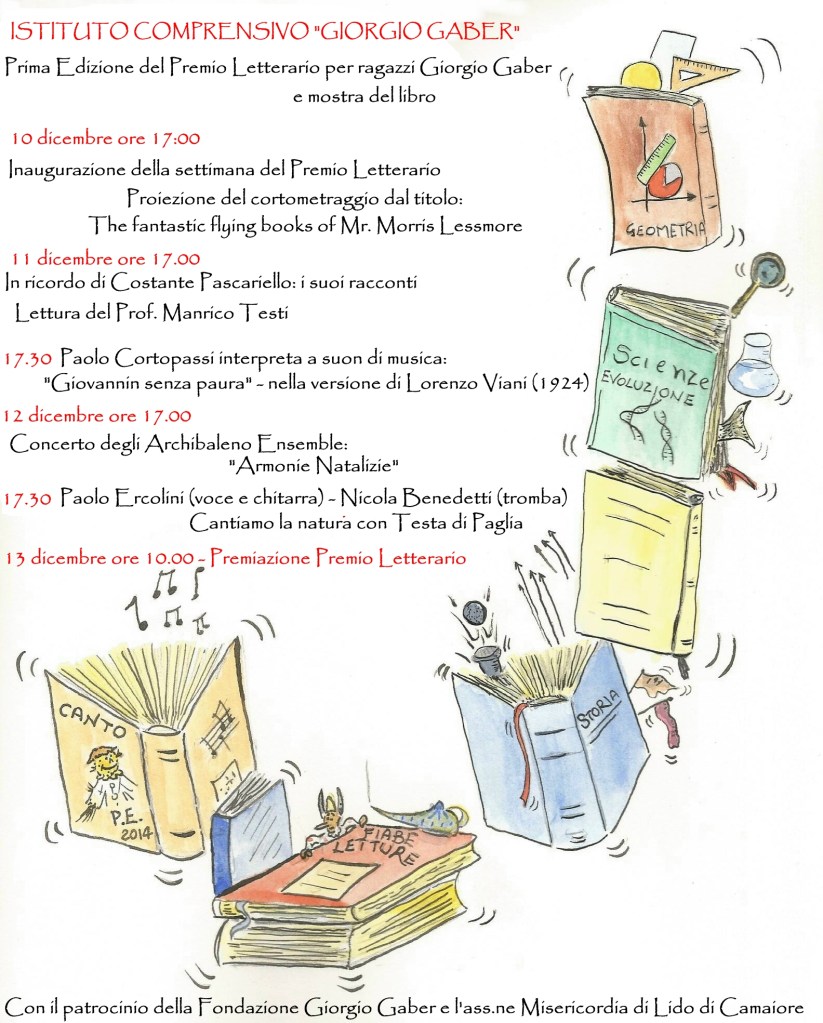 ISTITUTO COMPRENSIVO "GIORGIO GABER"
Prima Edizione del Premio Letterario per ragazzi Giorgio Gaber
e mostra del libro
10 dicembre ore 17:00
Inaugurazione della settimana del Premio Letterario
Proiezione del cortometraggio dal titolo:
The fantastic flying books of Mr. Morris Lessmore
11 dicembre ore 17.00
In ricordo di Costante Pascariello: i suoi racconti
Lettura del Prof. Manrico Testi
17.30 Paolo Cortopassi interpreta a suon di musica:
"Giovannin senza paura" - nella versione di Lorenzo Viani (1924)
12 dicembre ore 17.00
Concerto degli Archibaleno Ensemble:
"Armonie Natalizie"
17.30 Paolo Ercolini (voce e chitarra) - Nicola Benedetti (tromba)
Cantiamo la natura con Testa di Paglia
13 dicembre ore 10.00 - Premiazione Premio Letterario
GEOMETRIA
Scienze
EVOLUZIONE
STORIA
CANTO
P.E.
2014
FIABE
LETTURE
Con il patrocinio della Fondazione Giorgio Gaber e l'ass.ne Misericordia di Lido di Camaiore